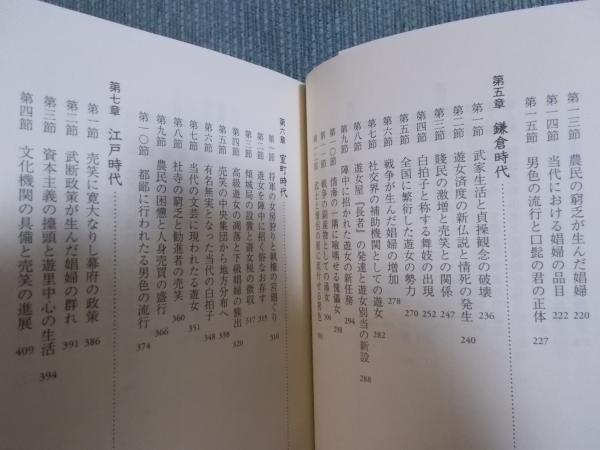 第一三節 農民の窮乏が生んだ娼婦 220
第一四節 当代における娼婦の品目 222
第一五節 男色の流行と口髭の君の正体 227
第五章 鎌倉時代
第一節 武家生活と貞操観念の破壊 236
第二節 遊女済度の新仏説と情死の発生 240
第三節 賤民の激増と売笑との関係 247
第四節 白拍子と称する舞妓の出現 252
第五節 全国に繁衍した遊女の勢力 270
第六節 戦争が生んだ娼婦の増加 278
第七節 社交界の補助機関としての遊女 282
第八節 遊女屋『長者』の発達と遊女別当の新設 288
第九節 陣中に招かれた遊女の新任務 294
第一〇節 情海の一隅に喩鳴せる傀儡女 298
戦争の副産物としての湯女 306
第六章 室町時代
第一節 将軍の女房狩りと執権の宮廻り 310
第二節 遊女を陣中に招く俗なお存す 315
第三節 傾城局の設置と遊女税の徴収 317
第四節 高級遊女の凋落と下級娼婦の簇出 320
第五節 売笑の中央集団から地方分布へ 338
第六節 有名無実となった当代の白拍子 348
第七節 当代の文芸に現われたる遊女 351
第八節 社寺の窮乏と勧進者の売笑 360
第九節 農民の困憊と人身売買の盛行 366
第一〇節 都鄙に行われたる男色の流行 374
第七章 江戸時代
第一節 売笑に寛大なりし幕府の政策 386
第二節 武断政策が生んだ娼婦の群れ 391
第三節 資本主義の擡頭と遊里中心の生活 394
第四節 文化機関の具備と売笑の進展 409